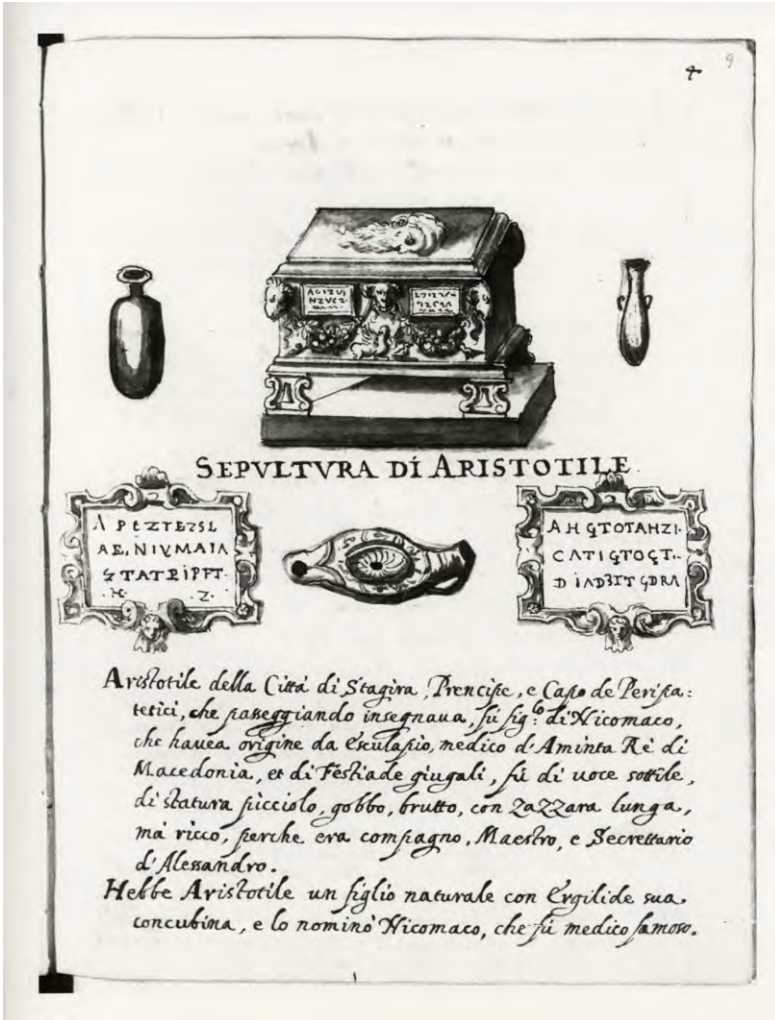 4 9
SEPVLTVRA DÍ ARISTOTILE.
A PEZTEZSL
AE, NIVMAIA
STATRIPFT.
·H· ·Z·
AHÇTOTAHZI·
CATIÇTOÇT..
Aristotile della Città di Stagira, Prencipe, e Capo de Peripa:
tetici, che passeggiando insegnaua, fù fig.lo di Nicomaco,
che hauea origine da Esculapio, medico d'Aminta Rè di
Macedonia, et di Festiade giugali, fù di uoce sottile,
di statura picciolo, gobbo, brutto, con zazzara lunga,
mà ricco, perche era compagno, Maestro, e Secrettario
d'Alessandro.
Hebbe Aristotile un figlio naturale con Ergilide sua
concubina, e lo nominò Nicomaco, che fù medico famoso.